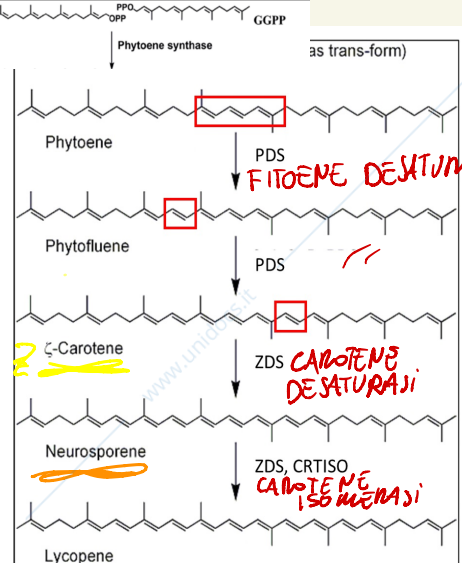 PPO
OPP
GGPP
Phytoene synthase
as trans-form)
Phytoene
PDS
FITOENE DESATU
Phytofluene
PDS
www.unidocs.it
ζ-Carotene
Z
ZDS CAROTENE
DESATURASI
Neurosporene
ZDS, CRTISO
CAROTENE
ISOMERASI
Lycopene